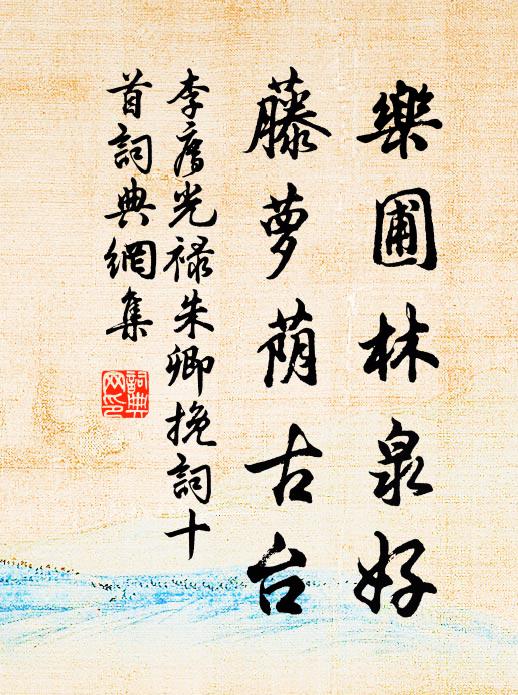 樂圃林泉好
藤萝荫古台
李光禄朱卿挽詞十
首詞典網集
詞典
网印